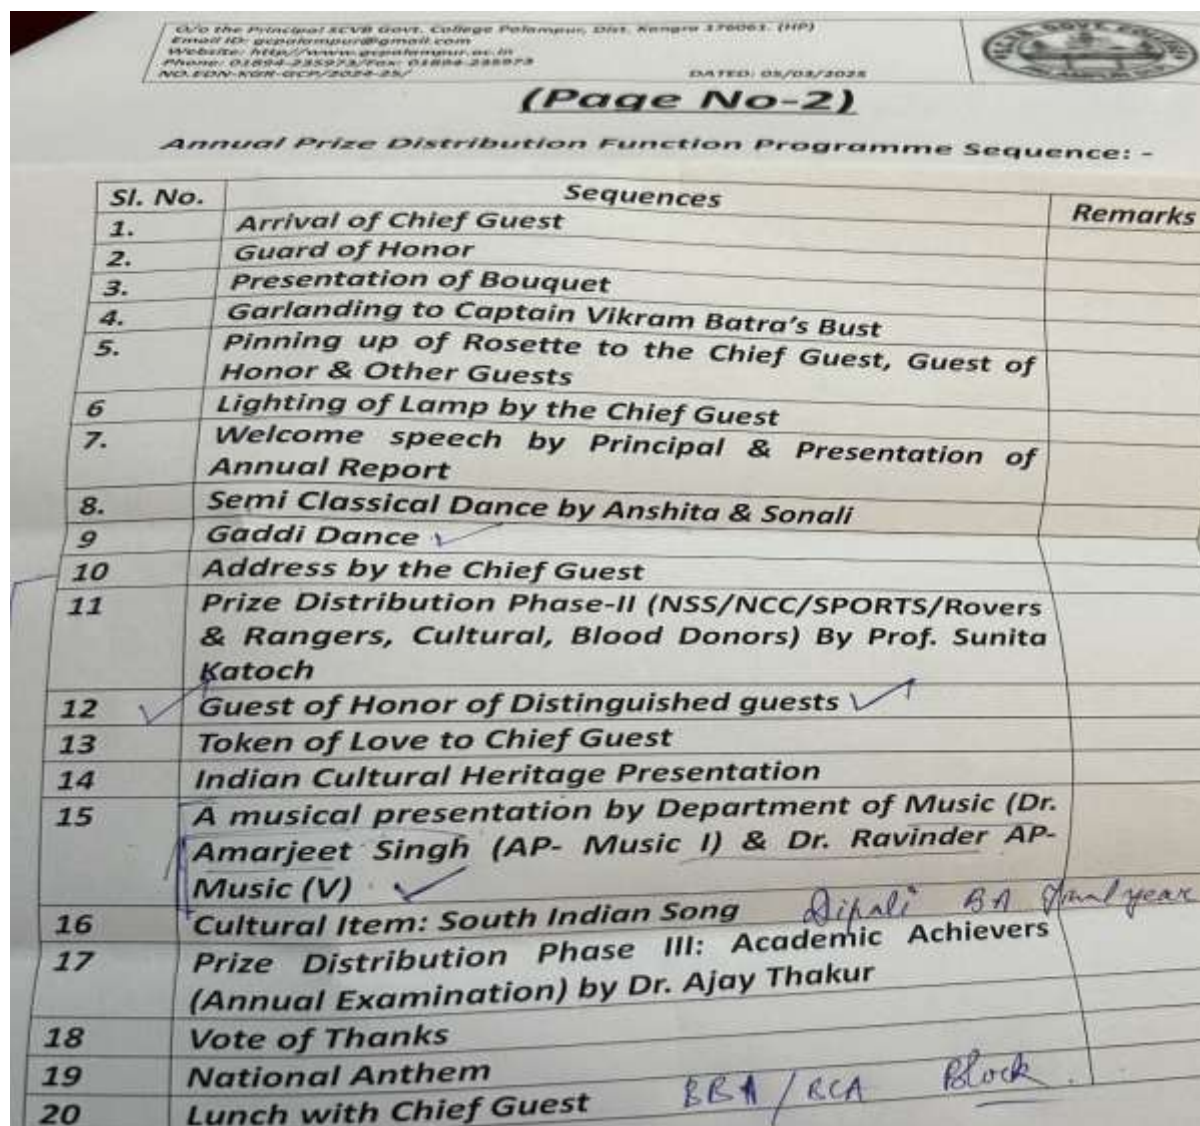 O/o the Principal SCVB Govt. College Palampur, Dist. Kangra 176061. (HP)
Email ID: gcpalampur@gmail.com
Website: http//www.gcpalampur.ac.in
Phone: 01894-235973/Fax: 01894-235973
NO.EDN-KGR-GCP/2024-25/ DATED: 05/03/2025
(Page No-2)
Annual Prize Distribution Function Programme Sequence: -
Sl. No. Sequences Remarks
1. Arrival of Chief Guest
2. Guard of Honor
3. Presentation of Bouquet
4. Garlanding to Captain Vikram Batra's Bust
5. Pinning up of Rosette to the Chief Guest, Guest of
Honor & Other Guests
6 Lighting of Lamp by the Chief Guest
7. Welcome speech by Principal & Presentation of
Annual Report
8. Semi Classical Dance by Anshita & Sonali
9 Gaddi Dance
10 Address by the Chief Guest
11 Prize Distribution Phase-II (NSS/NCC/SPORTS/Rovers
& Rangers, Cultural, Blood Donors) By Prof. Sunita
Katoch
12 Guest of Honor of Distinguished guests
13 Token of Love to Chief Guest
14 Indian Cultural Heritage Presentation
15 A musical presentation by Department of Music (Dr.
Amarjeet Singh (AP- Music I) & Dr. Ravinder AP-
Music (V)
16 Cultural Item: South Indian Song Dipali BA final year
17 Prize Distribution Phase III: Academic Achievers
(Annual Examination) by Dr. Ajay Thakur
18 Vote of Thanks
19 National Anthem
20 Lunch with Chief Guest BBA/BCA Block